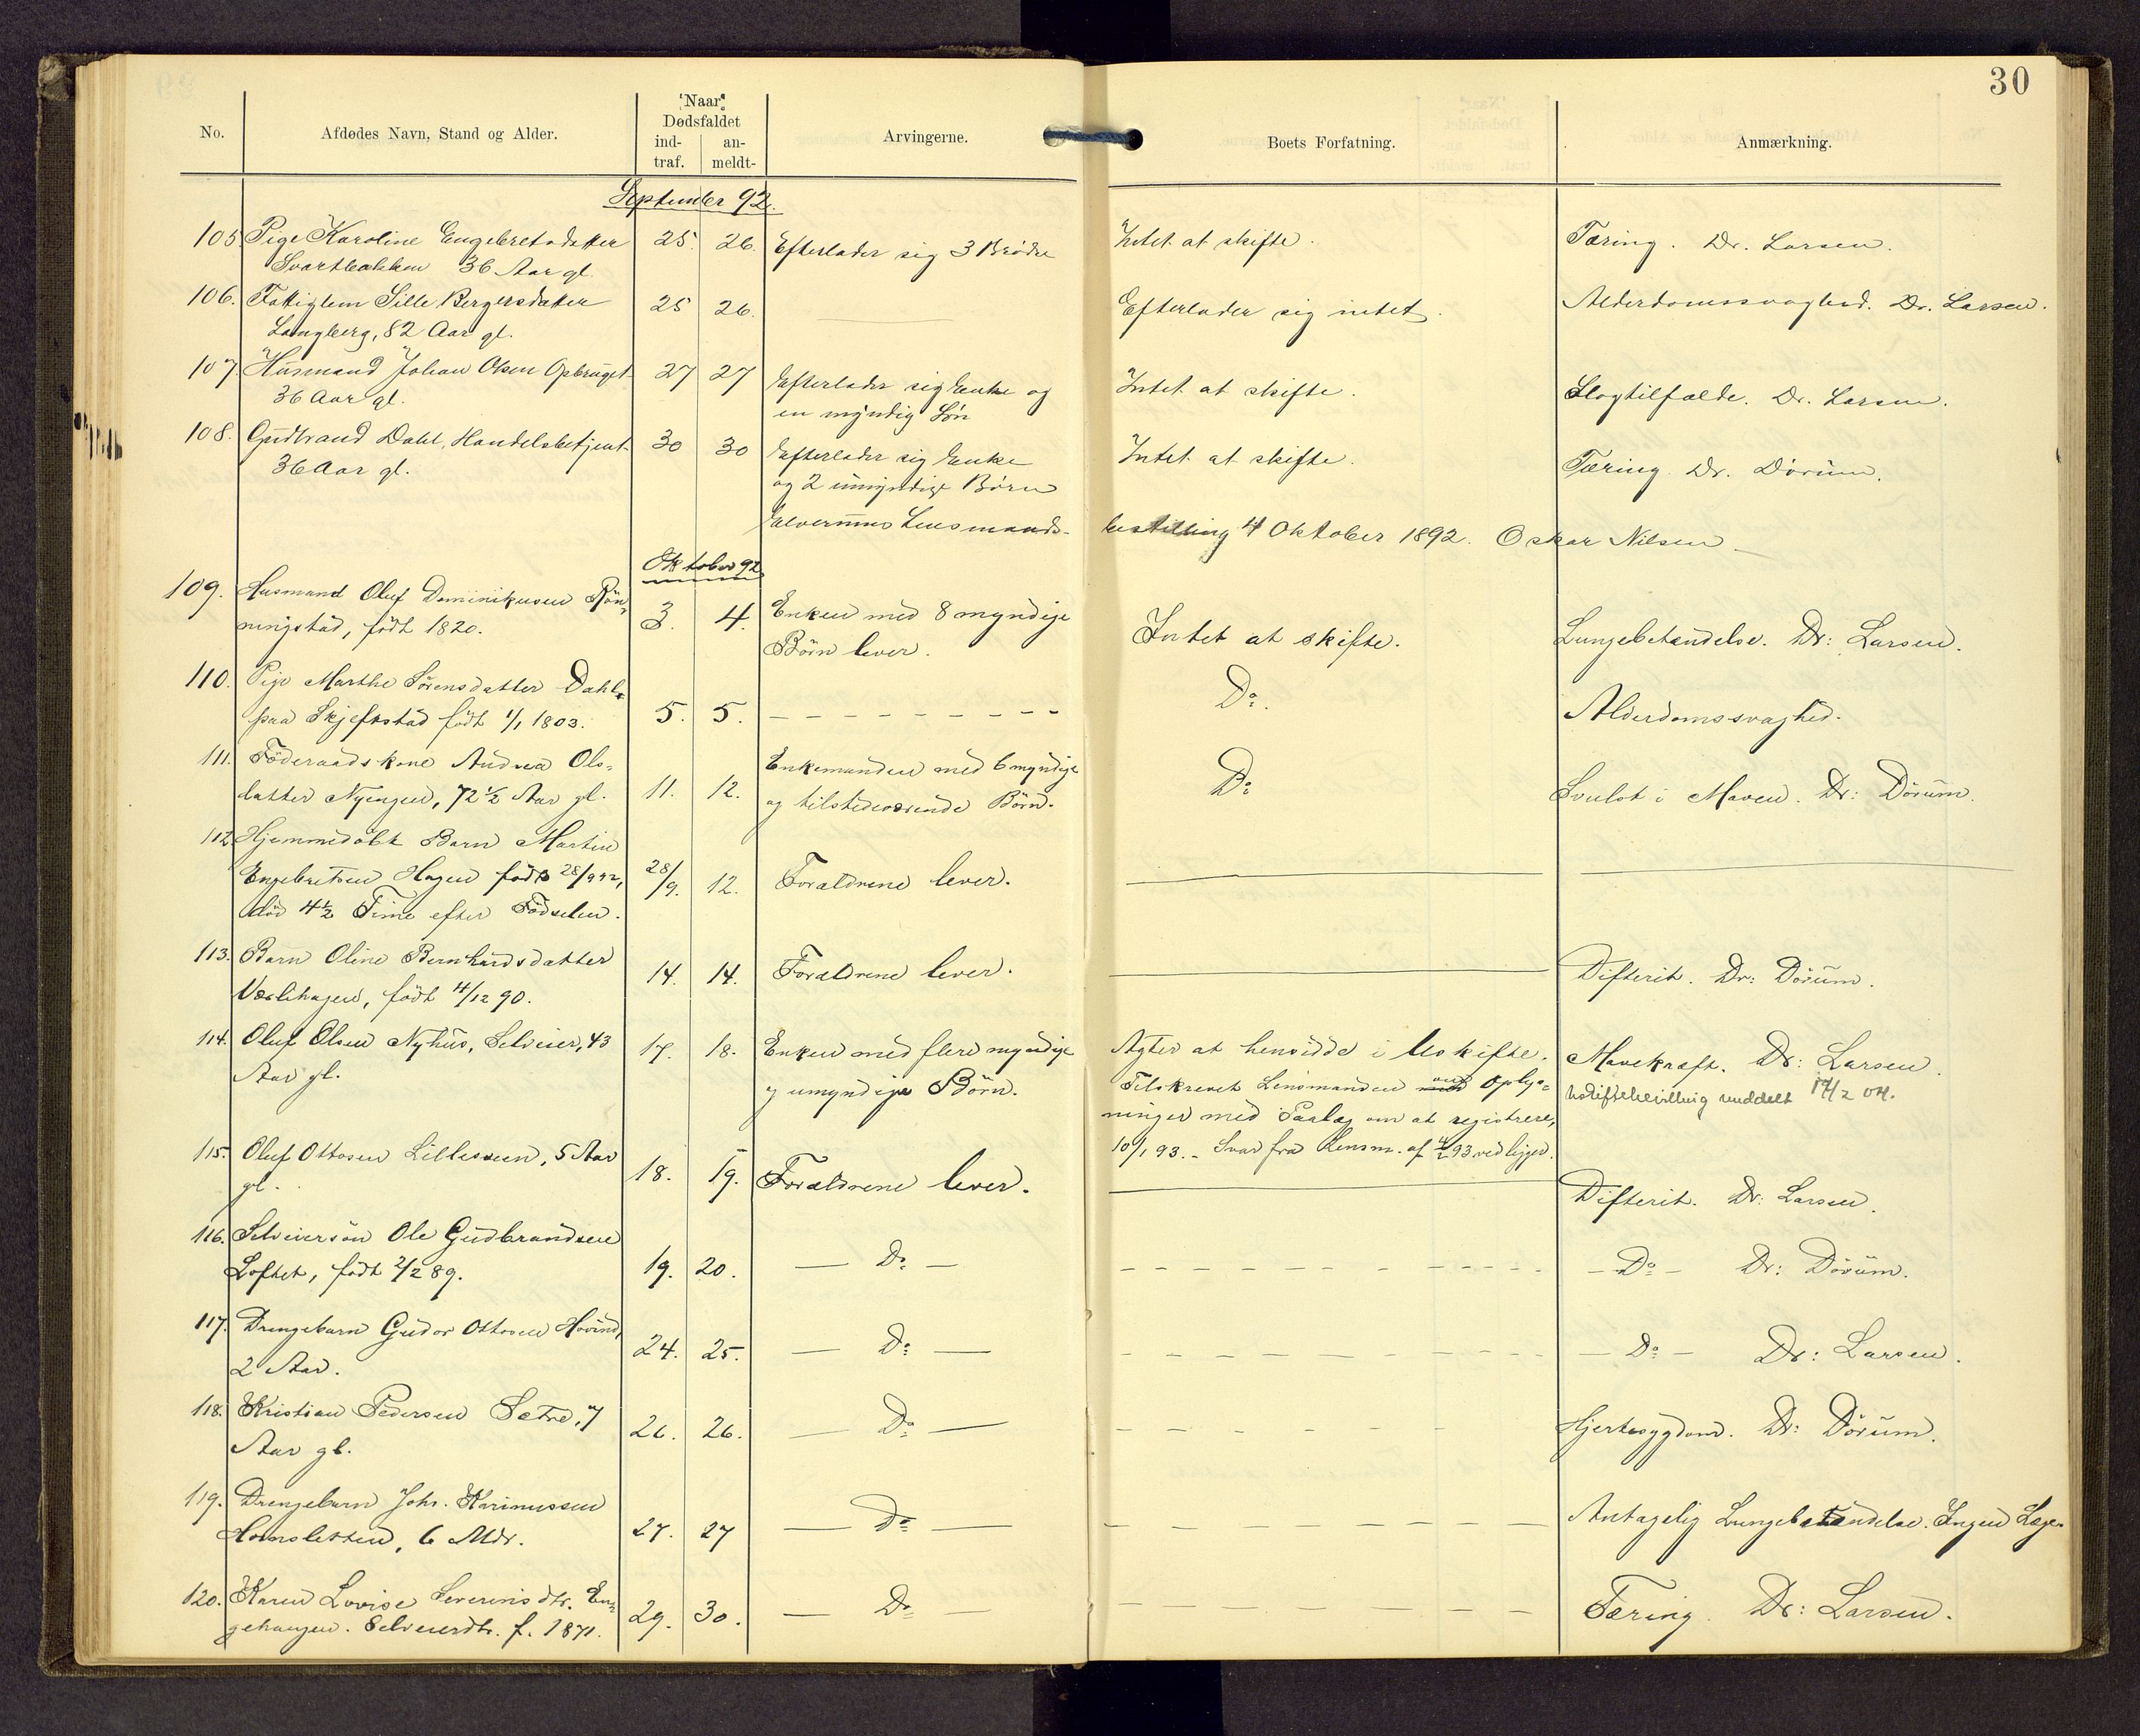 30
No. Afdødes Navn, Stand og Alder. Naar Dødsfaldet indtraf. anmeldt- Arvingerne. Boets Forfatning. Anmærkning.
September 92.
105 Pige Karoline Engebretsdatter 25. 26. Efterlader sig 3 Brødre Intet at skifte. Tæring. Dr. Larsen.
Svartbakken 36 Aar gl.
106. Fattiglem Sille Bergersdatter 25 26. Efterlader sig intet. Alderdomssvaghed. Dr. Larsen.
Langberg, 82 Aar gl.
107. Husmand Johan Olsen Opbruget 27 27 Efterlader sig Enke og Intet at skifte. Slagtilfælde. Dr. Larsen.
36 Aar gl. en myndig Søn
108. Gudbrand Dahl, Handelsbetjent 30 30 Efterlader sig Enke Intet at skifte. Tæring. Dr. Dørum.
36 Aar gl. og 2 umyndige Børn
Elverums Lensmands- bestilling 4 Oktober 1892. Oskar Nilsen
Oktober 92
109. Husmand Oluf Dominikusen Rön- 3. 4. Enken med 8 myndige Intet at skifte. Lungebetændelse. Dr: Larsen.
ningstad, födt 1820. Börn lever.
110. Pige Marthe Sørensdatter Dahl 5. 5. Do. Alderdomssvaghed.
paa Skjefstad födt 1/1 1803.
111. Föderaadskone Andrea Ols- 11. 12. Enkemanden med 6 myndige Do Svulst i Maven. Dr: Dörum.
datter Nyengen, 72½ Aar gl. og tilstedeværende Börn.
112. Hjemmedöbt Barn Martin
Engebretsen Hagen födt 28/9 92, 28/9. 12. Forældrene lever.
död 4½ Time efter Födselen.
113. Barn Oline Bernhardsdatter 14. 14. Forældrene lever. Difterit. Dr: Dörum.
födt 4/12 90.
114. Oluf Olsen Nyhus, Selveier, 43 17. 18. Enken med flere myndige Agter at hensidde i Uskifte. Mavekræft. Dr: Larsen.
Aar gl. og umyndige Börn. Tilskrevet Lensmanden om Oplys- Uskiftebevilling meddelt 17/2 04.
ninger med Paalæg om at registrere,
10/1 93. - Svar fra Lensm. af 4/2 93 vedligger.
115. Oluf Ottosen Lilleveen, 5 Aar 18. 19. Forældrene lever. Difterit. Dr: Larsen.
gl.
116. Selveiersön Ole Gudbrandsen 19. 20. — Do — — Do — Dr: Dörum.
Loftet, födt 2/2 89.
117. Drengebarn Gudor Ottosen Hovind, 24. 25. — Do — — Do — Dr: Larsen.
2 Aar.
118. Kristian Pedersen Sætre, 7 26. 26. — Do — Hjertesygdom. Dr: Dörum.
Aar gl.
119. Drengebarn Johs. Karinussen 27. 27 — Do — Antagelig Lungebetændelse. Ingen Læge.
Hornsletten, 6 Mdr.
120. Karen Lovise Severinsdtr. En- 29. 30. — Do — Tæring. Dr: Larsen.
gehaugen. Selveierdtr. f. 1871.